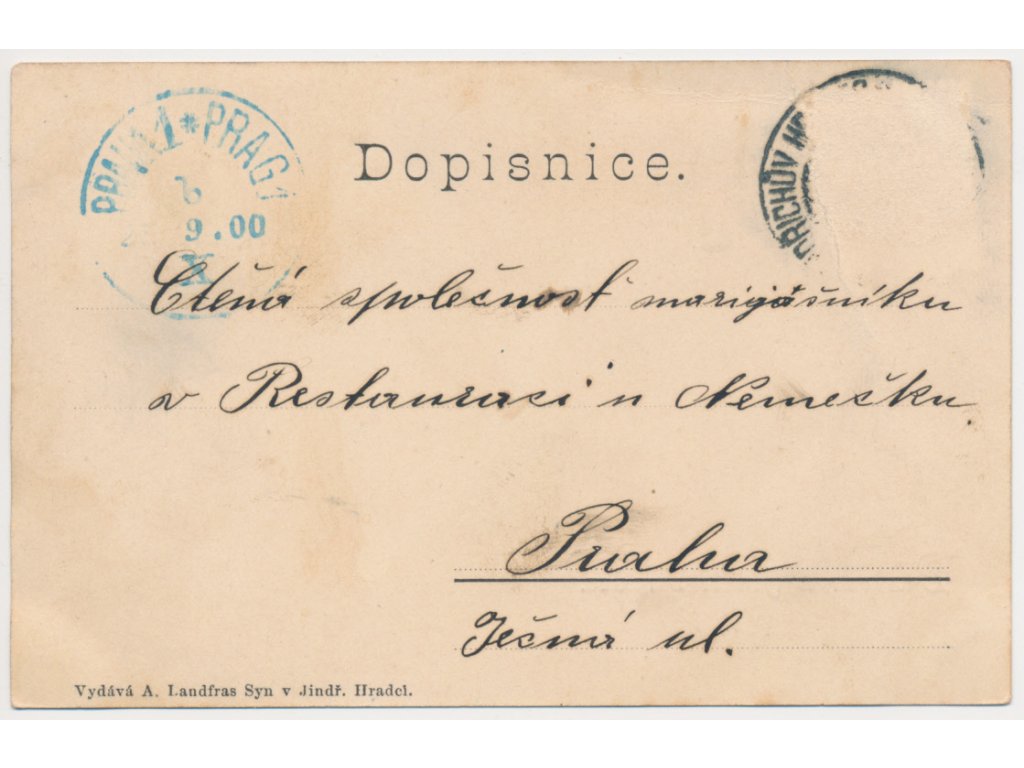 PRAHA 1 * PRAG 1
6
9.00
X
Dopisnice.
Ctěná společnost marigášníku
v Restauraci u Nemešku.
Praha
Ječná ul.
Vydává A. Landfras Syn v Jindř. Hradci.